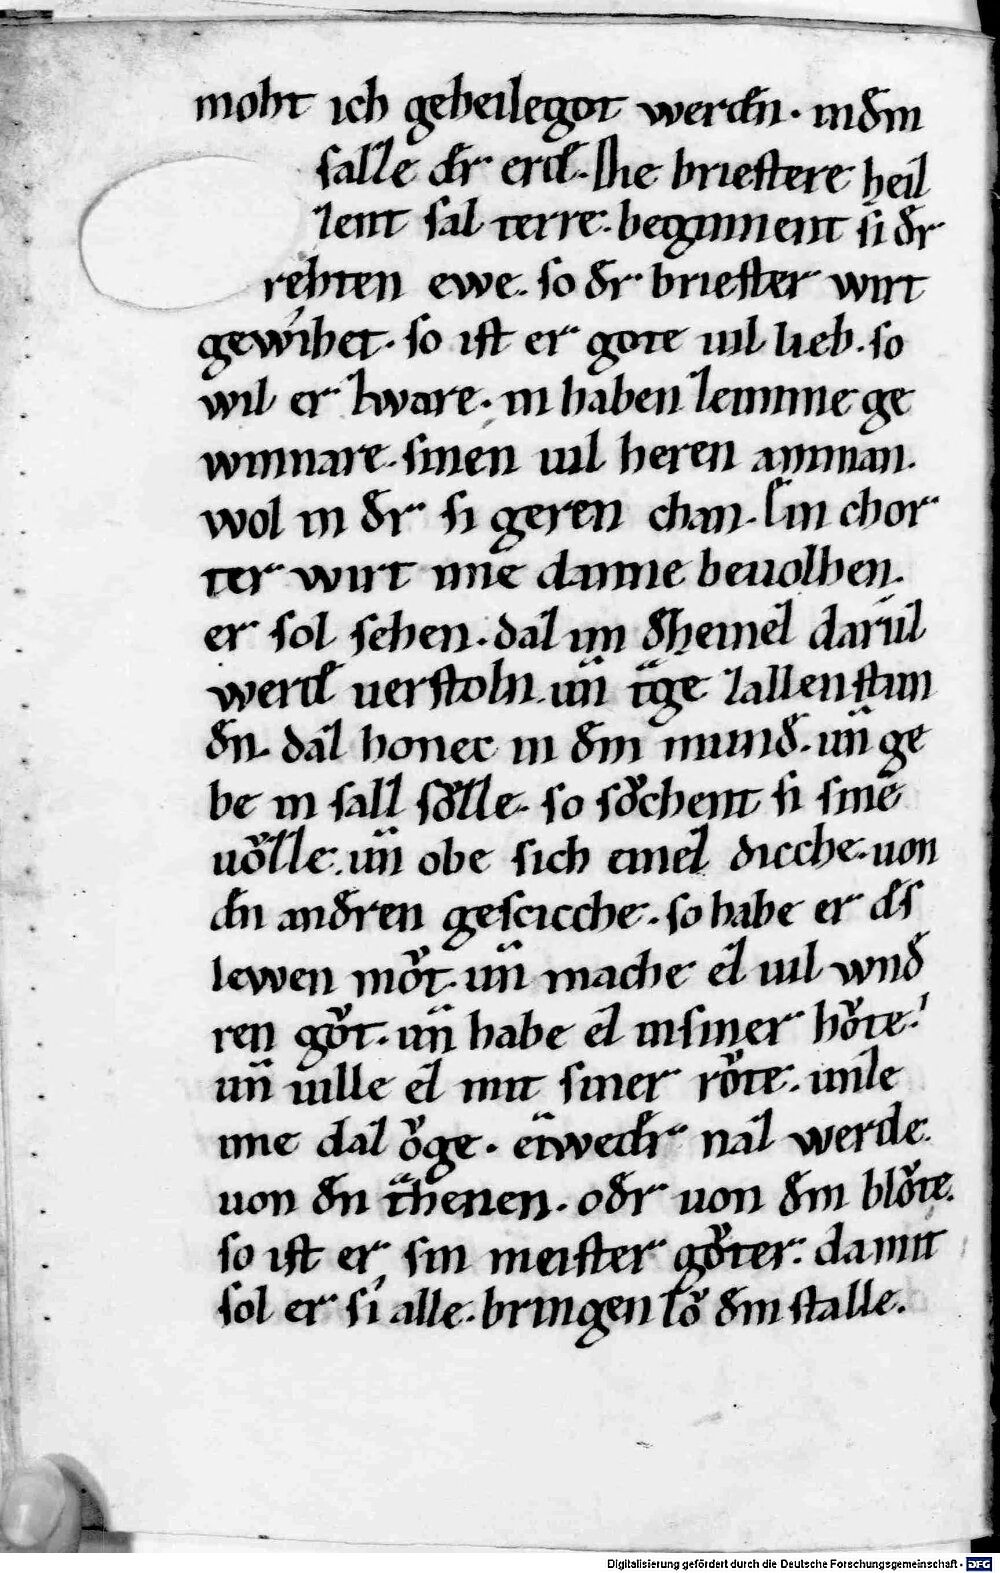 moht ich geheilegot werdn · in dem
salze dr erde. Die briestere heiz
zent sal terre. beginnent si dr
rehten ewe. so dr briester wirt
gewihet. so ist er gote uil lieb. so
wil er zware. in haben zeinime ge
winnare. sinen uil heren amman.
wol in dr si geren chan. Sin chor
ter wirt ime danne beuolhen.
er sol sehen. daz im dheinez daruz
werde uerstoln. un̄ tͤge zallen stun
dn. daz honec in dm munde. un̄ ge
be in salz sŏzze. so sŏchent si sine
uŏzze. un̄ obe sich einez dicche. uon
dn andren gescicche. so habe er ds
lewen mŏt. un̄ mache ez uil wnd
ren gŏt. un̄ habe ez in siner hŏte.
un̄ uille ez mit siner rŏte. unze
ime daz ŏge. etwedr naz werde.
uon dn tͤhenen. odr uon dm blŏte.
so ist er sin meister gŏter. da mit
sol er si alle. bringen zŏ dm stalle.
Digitalisierung gefördert durch die Deutsche Forschungsgemeinschaft - DFG